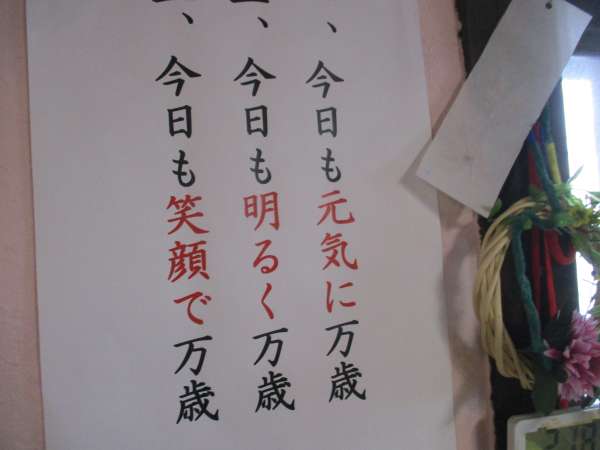 、今日も元気に万歳
、今日も明るく万歳
、今日も笑顔で万歳